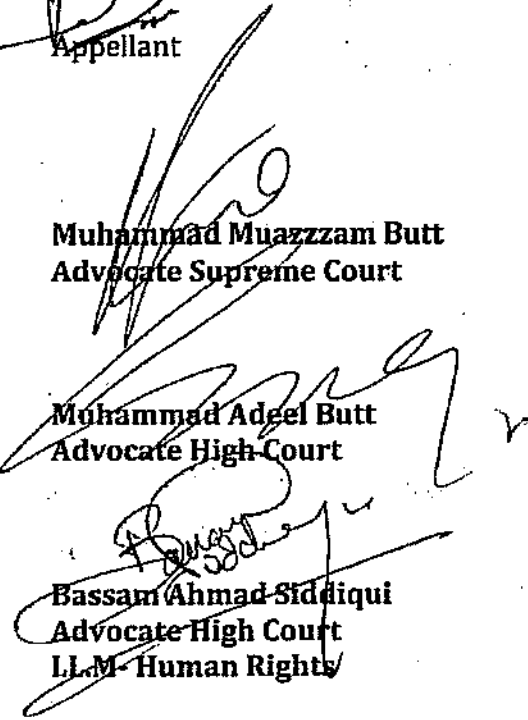 Appellant
Muhammad Muazzzam Butt
Advocate Supreme Court
Muhammad Adeel Butt
Advocate High Court
Bassam Ahmad Siddiqui
Advocate High Court
LL.M- Human Rights